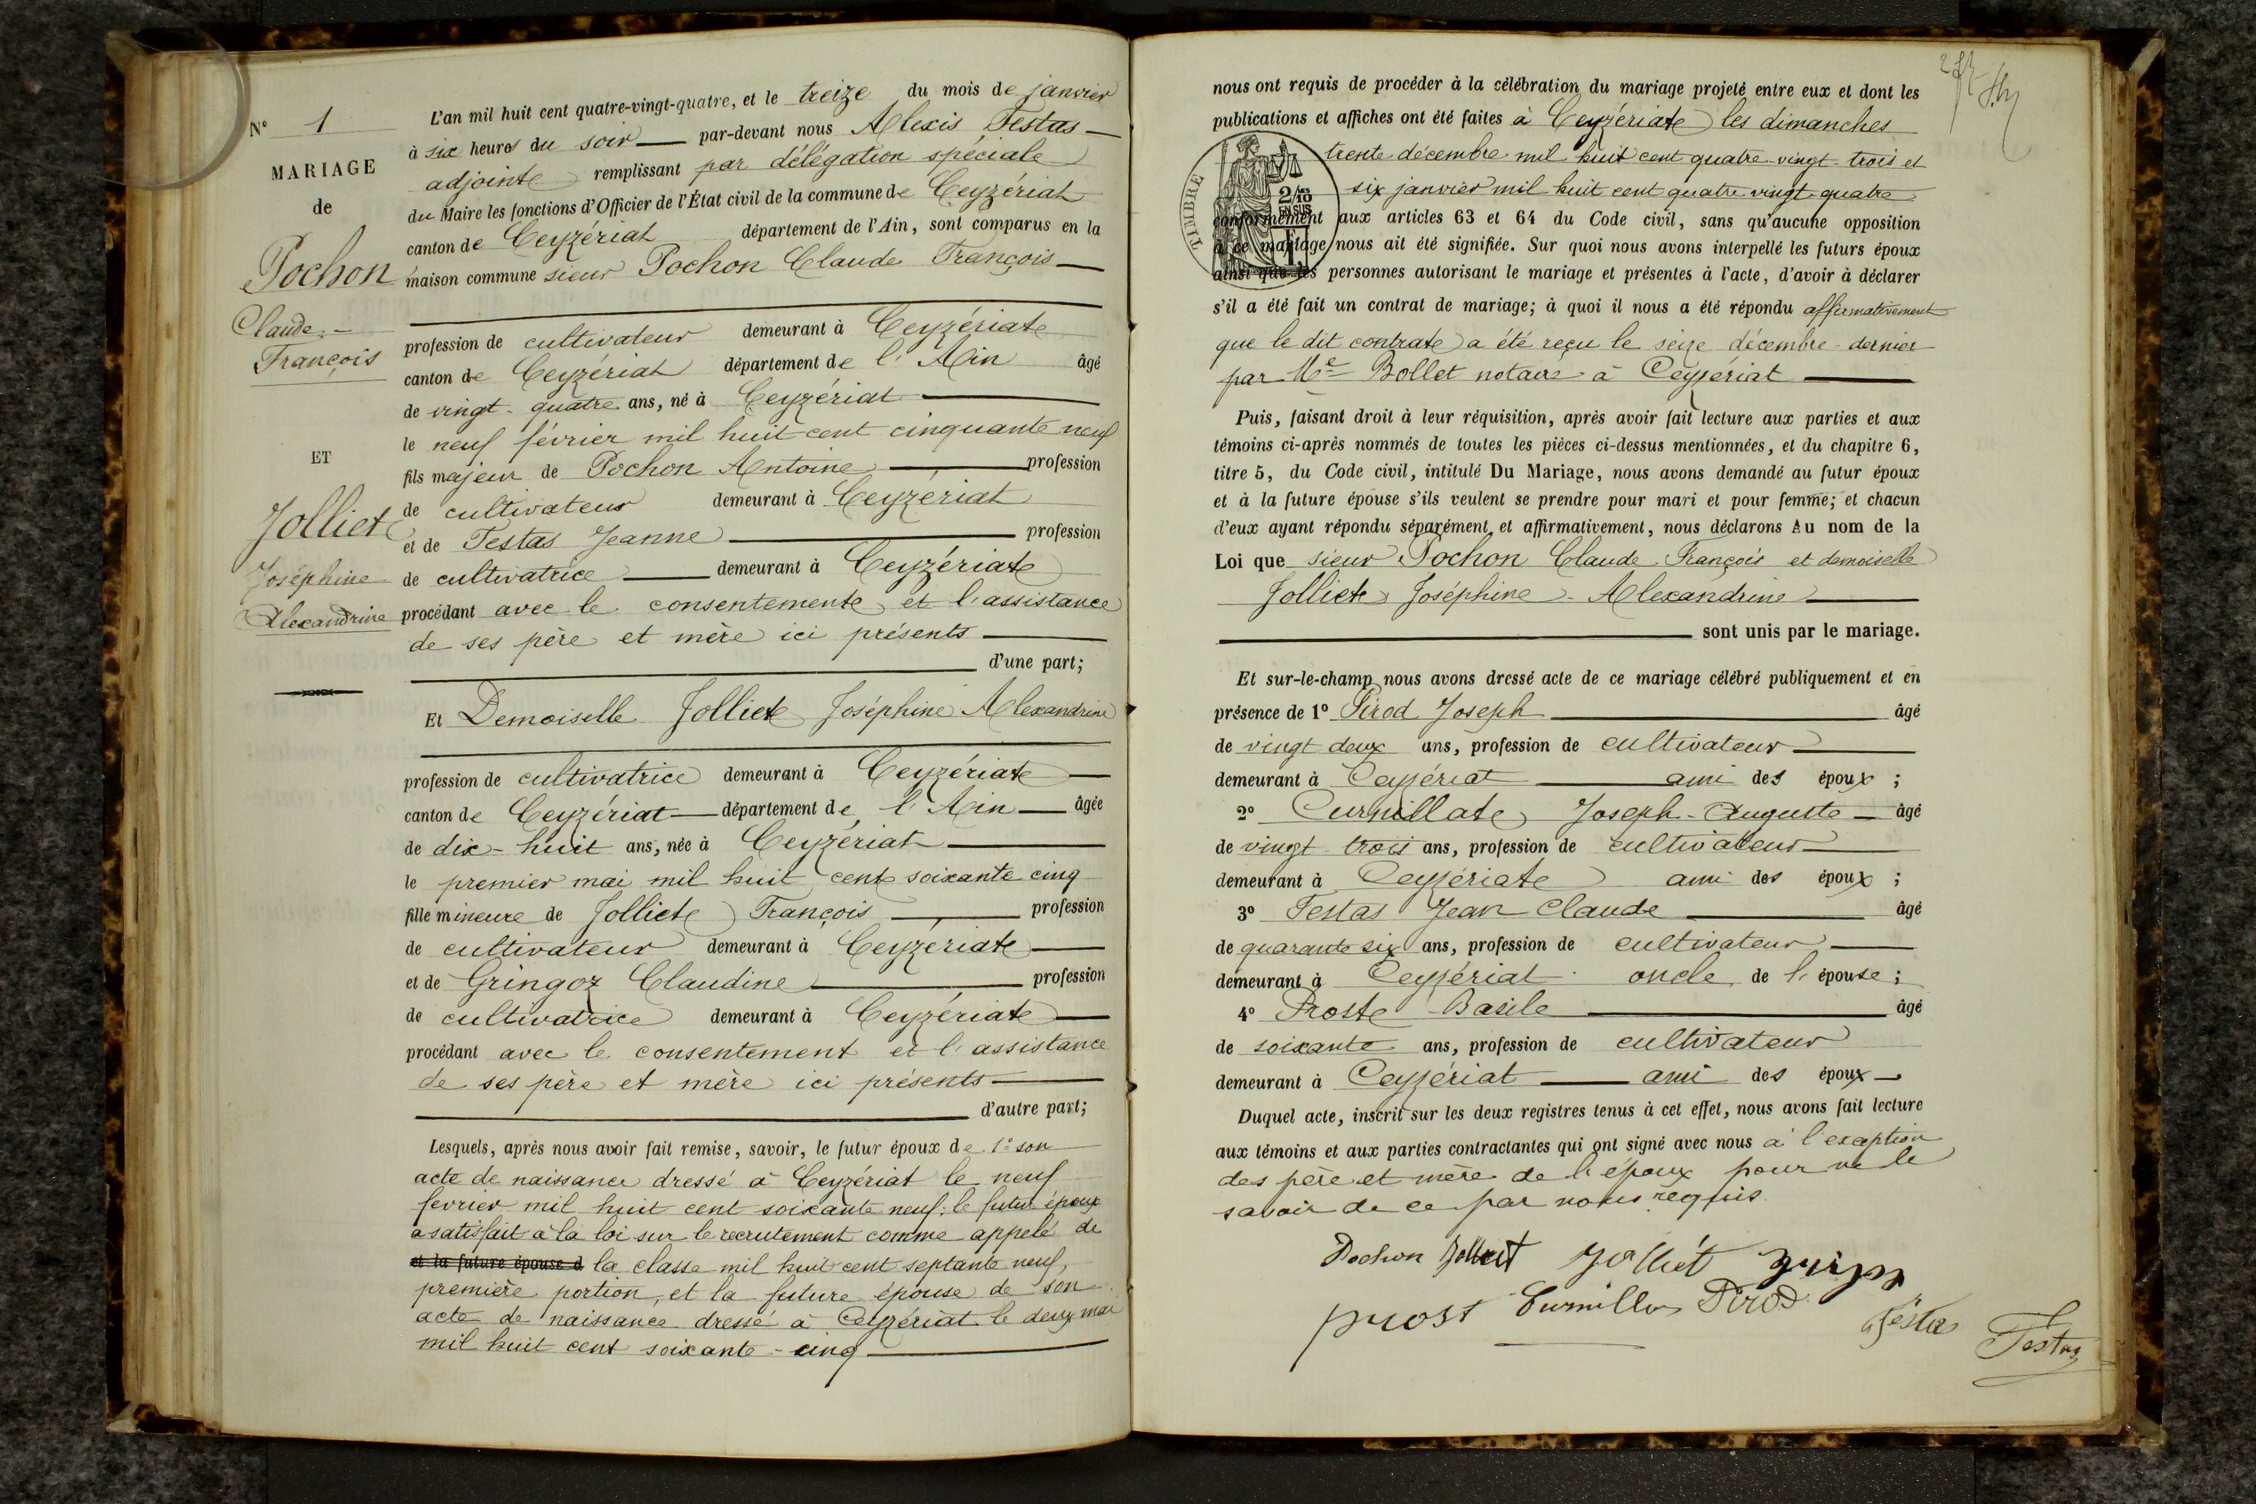 N° 1
MARIAGE
de
Pochon
Claude
François
ET
Jolliet
Joséphine
Alexandrine
L'an mil huit cent quatre-vingt-quatre, et le treize du mois de janvier
à six heures du soir par-devant nous Alexis Testas
adjoint remplissant par délégation spéciale
du Maire les fonctions d'Officier de l'État civil de la commune de Ceyzériat
canton de Ceyzériat département de l'Ain, sont comparus en la
maison commune sieur Pochon Claude François
profession de cultivateur demeurant à Ceyzériat
canton de Ceyzériat département de l'Ain âgé
de vingt-quatre ans, né à Ceyzériat
le neuf février mil huit cent cinquante neuf
fils majeur de Pochon Antoine profession
de cultivateur demeurant à Ceyzériat
et de Testas Jeanne profession
de cultivatrice demeurant à Ceyzériat
procédant avec le consentement et l'assistance
de ses père et mère ici présents
d'une part;
Et Demoiselle Jolliet Joséphine Alexandrine
profession de cultivatrice demeurant à Ceyzériat
canton de Ceyzériat département de l'Ain âgée
de dix-huit ans, née à Ceyzériat
le premier mai mil huit cent soixante cinq
fille mineure de Jolliet François profession
de cultivateur demeurant à Ceyzériat
et de Gringoz Claudine profession
de cultivatrice demeurant à Ceyzériat
procédant avec le consentement et l'assistance
de ses père et mère ici présents
d'autre part;
Lesquels, après nous avoir fait remise, savoir, le futur époux de 1° son
acte de naissance dressé à Ceyzériat le neuf
fevrier mil huit cent soixante neuf: le futur époux
a satisfait à la loi sur le recrutement comme appelé de
et la future épouse d la classe mil huit cent septante neuf,
première portion, et la future épouse de son
acte de naissance dressé à Ceyzériat le deux mai
mil huit cent soixante-cinq
nous ont requis de procéder à la célébration du mariage projeté entre eux et dont les
publications et affiches ont été faites à Ceyzériat les dimanches
trente décembre mil huit cent quatre-vingt-trois et
six janvier mil huit cent quatre vingt quatre
TIMBRE
2/10
EN SUS
conformément aux articles 63 et 64 du Code civil, sans qu'aucune opposition
à ce mariage nous ait été signifiée. Sur quoi nous avons interpellé les futurs époux
ainsi que les personnes autorisant le mariage et présentes à l'acte, d'avoir à déclarer
s'il a été fait un contrat de mariage; à quoi il nous a été répondu affirmativement
que le dit contrat a été reçu le seize décembre dernier
par Me Bollet notaire à Ceyzériat
Puis, faisant droit à leur réquisition, après avoir fait lecture aux parties et aux
témoins ci-après nommés de toutes les pièces ci-dessus mentionnées, et du chapitre 6,
titre 5, du Code civil, intitulé Du Mariage, nous avons demandé au futur époux
et à la future épouse s'ils veulent se prendre pour mari et pour femme; et chacun
d'eux ayant répondu séparément et affirmativement, nous déclarons Au nom de la
Loi que sieur Pochon Claude François et demoiselle
Jolliet Joséphine-Alexandrine
sont unis par le mariage.
Et sur-le-champ nous avons dressé acte de ce mariage célébré publiquement et en
présence de 1° Pirod Joseph âgé
de vingt deux ans, profession de cultivateur
demeurant à Ceyzériat ami des époux;
2° Curnillat Joseph-Auguste âgé
de vingt trois ans, profession de cultivateur
demeurant à Ceyzériat ami des époux;
3° Testas Jean Claude âgé
de quarante six ans, profession de cultivateur
demeurant à Ceyzériat oncle de l'épouse;
4° Prost Basile âgé
de soixante ans, profession de cultivateur
demeurant à Ceyzériat ami des époux
Duquel acte, inscrit sur les deux registres tenus à cet effet, nous avons fait lecture
aux témoins et aux parties contractantes qui ont signé avec nous à l'exception
des père et mère de l'époux pour ne le
savoir de ce par nous requis.
Pochon Jolliet Jolliet
Prost Curnillat Pirod Testas Testas